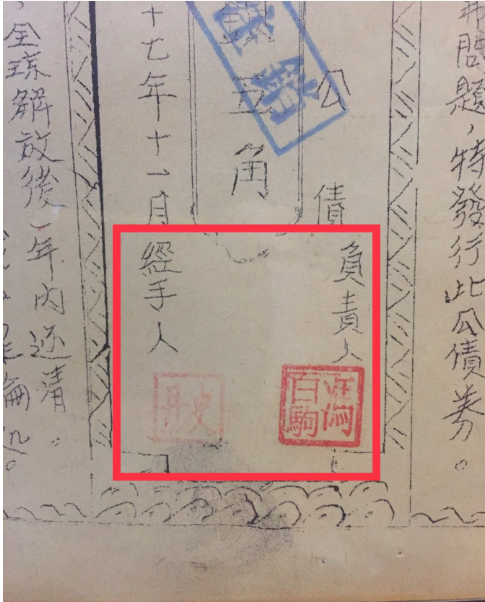 問題，特發行此公債券。
公債
負責人
百駒
五角
十七年十一月
經手人
史丹
全琼解放後一年内还清。